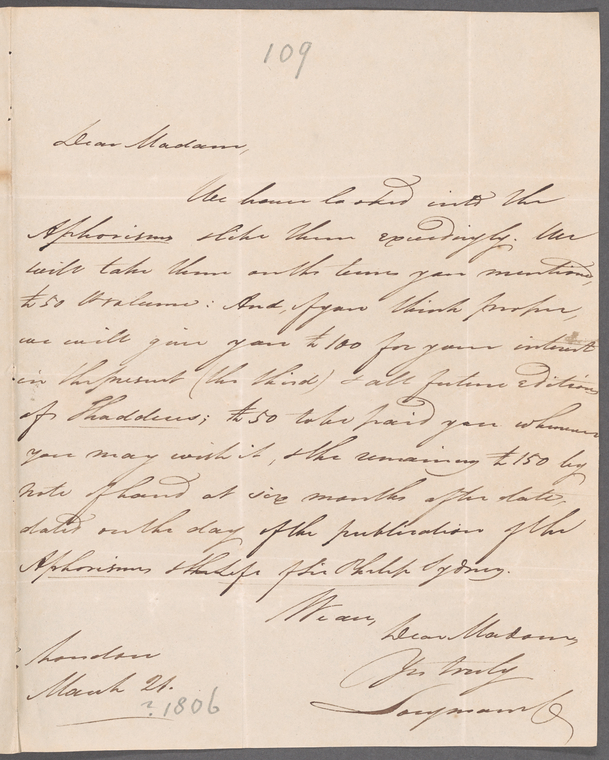 109
Dear Madam,
We have looked into the
Aphorisms & like them exceedingly. We
will take them on the terms you mention,
£50 volume: And, if you think proper,
we will give you £100 for your interest
in the present (the third) & all future editions
of Thaddeus; £50 to be paid you whenever
you may wish it, & the remaining £150 by
note of hand at six months after date,
dated on the day of the publication of the
Aphorisms & the Life of Sir Philip Sydney.
We are,
Dear Madam,
Yrs truly
Longman & Co
London
March 21.
? 1806